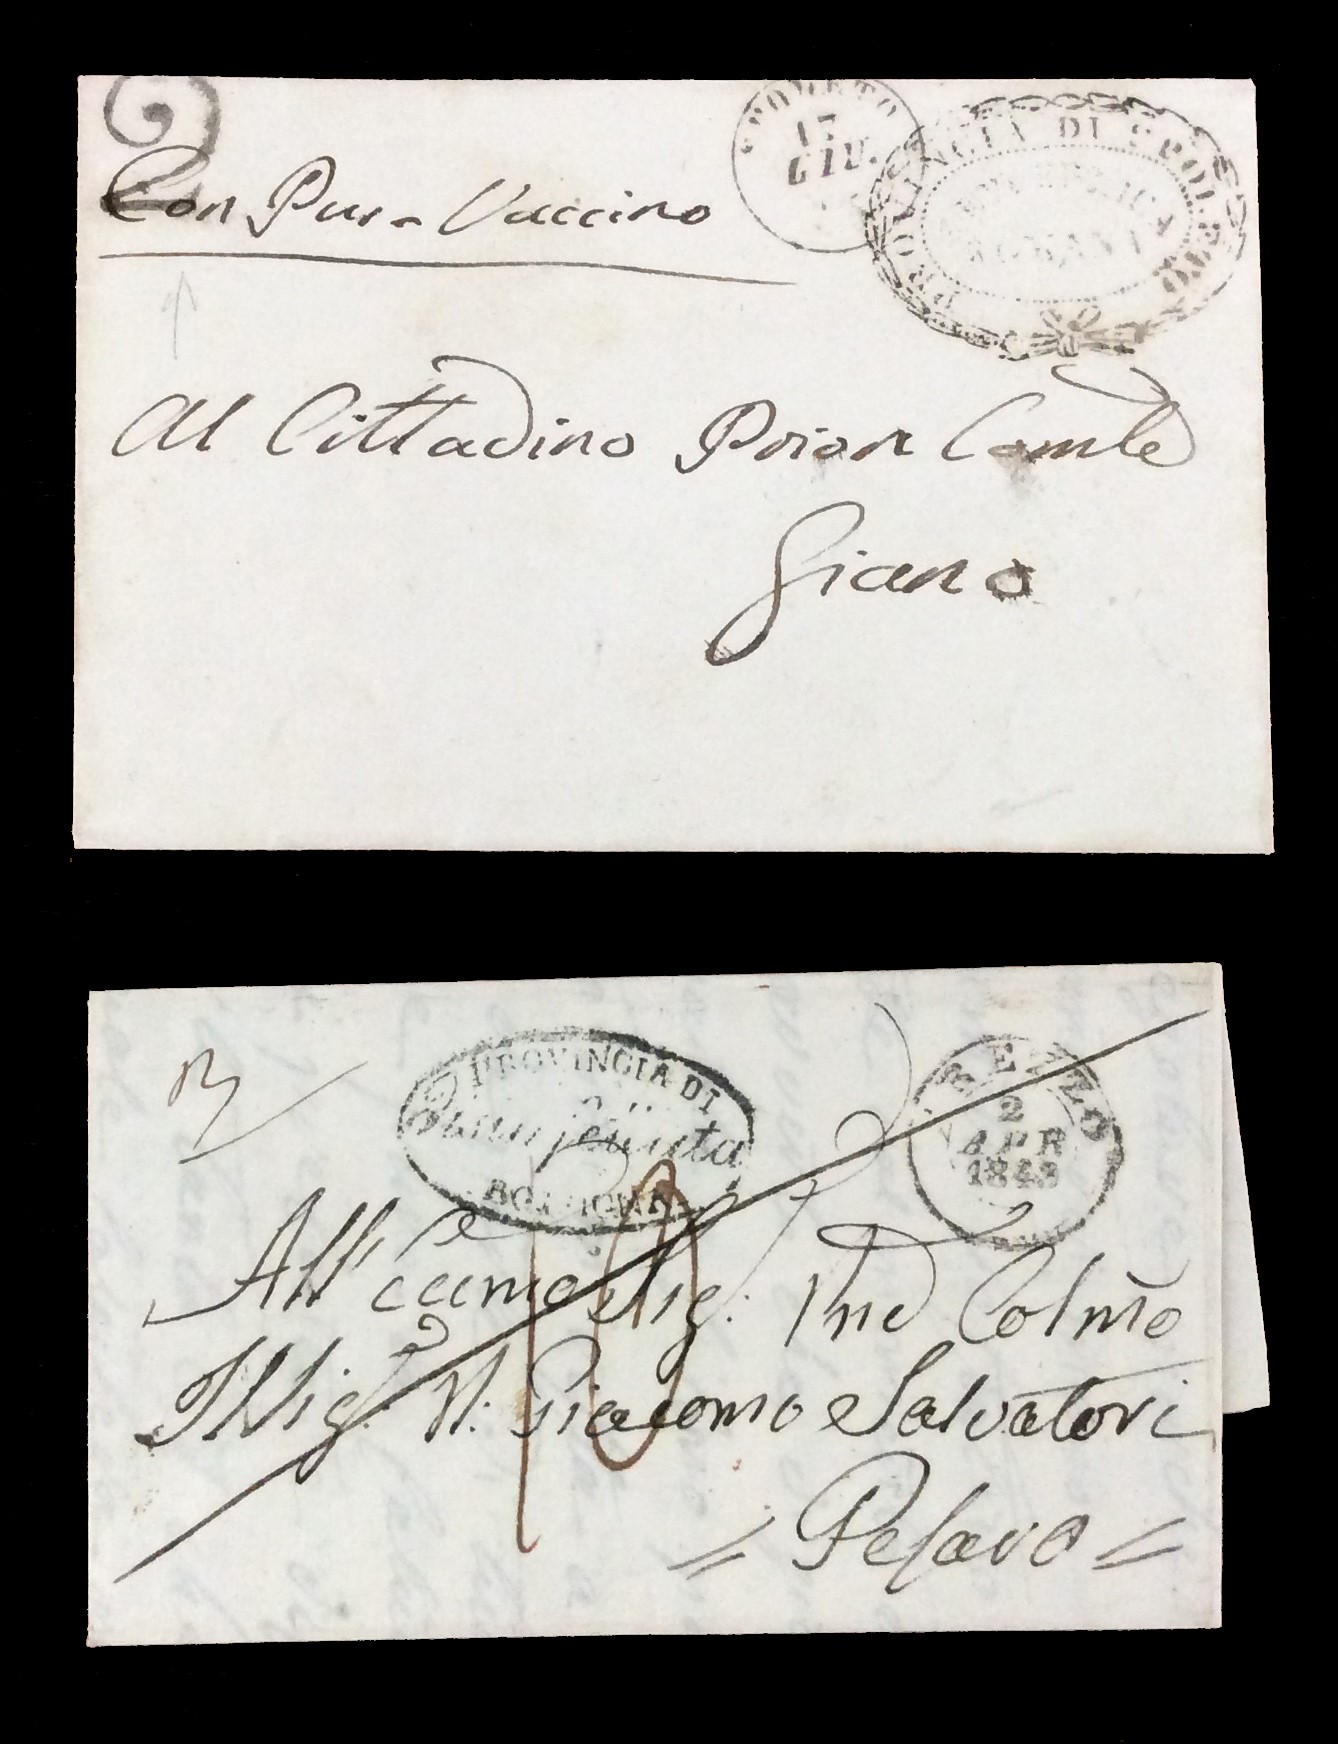 SPOLETO
17
GIU.
PROVINCIA DI SPOLETO
REPUBBLICA
ROMANA
Con Pus-Vaccino
Al Cittadino Prior Comle
Giano
PROVINCIA DI
BOLOGNA
AREZZO
2
APR
1843
13
All' Sig: Pne Colmo
Il Sig: Giacomo Salvatori
= Pesaro =